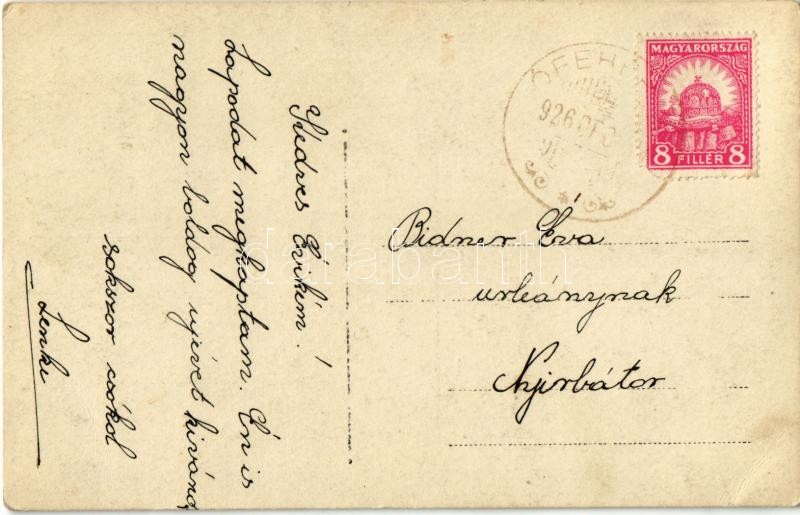 Kedves Évikém!
Lapodat megkaptam. Én is
nagyon boldog ujévet kivánok
sokszor csókol
Lenke
MAGYARORSZÁG
8 FILLÉR 8
ÓFEHÉ
926 DEC
Bidner Éva
urleánynak
Nyirbátor
darabanth